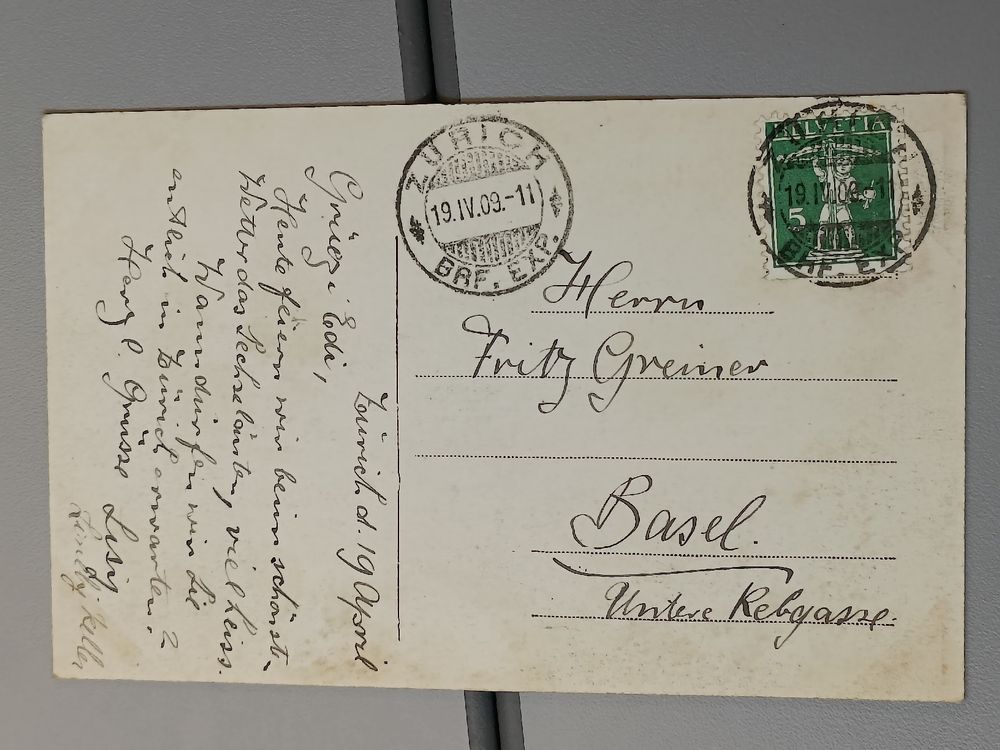 Zürich d. 19 April
Grüezi Edi,
Heute feiern wir beim schönst.
Wetter das Sechseläuten, viel heiss.
Wann dürfen wir Sie
entlich in Zürich erwarten?
Herz l. Grüsse Lisy
ZÜRICH
19.IV.09.-11
BRF. EXP.
HELVETIA
5
19.IV.09.-11
BRF. EXP.
Herrn
Fritz Greiner
Basel.
Untere Rebgasse.